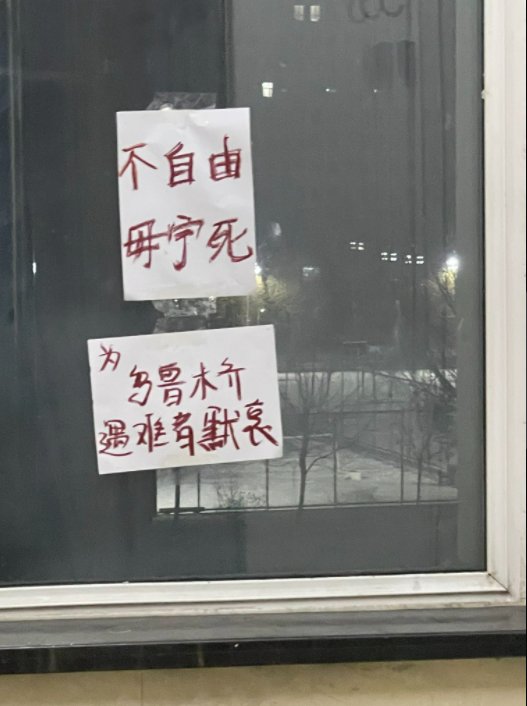 不自由
毋宁死
为
乌鲁木齐
遇难者默哀